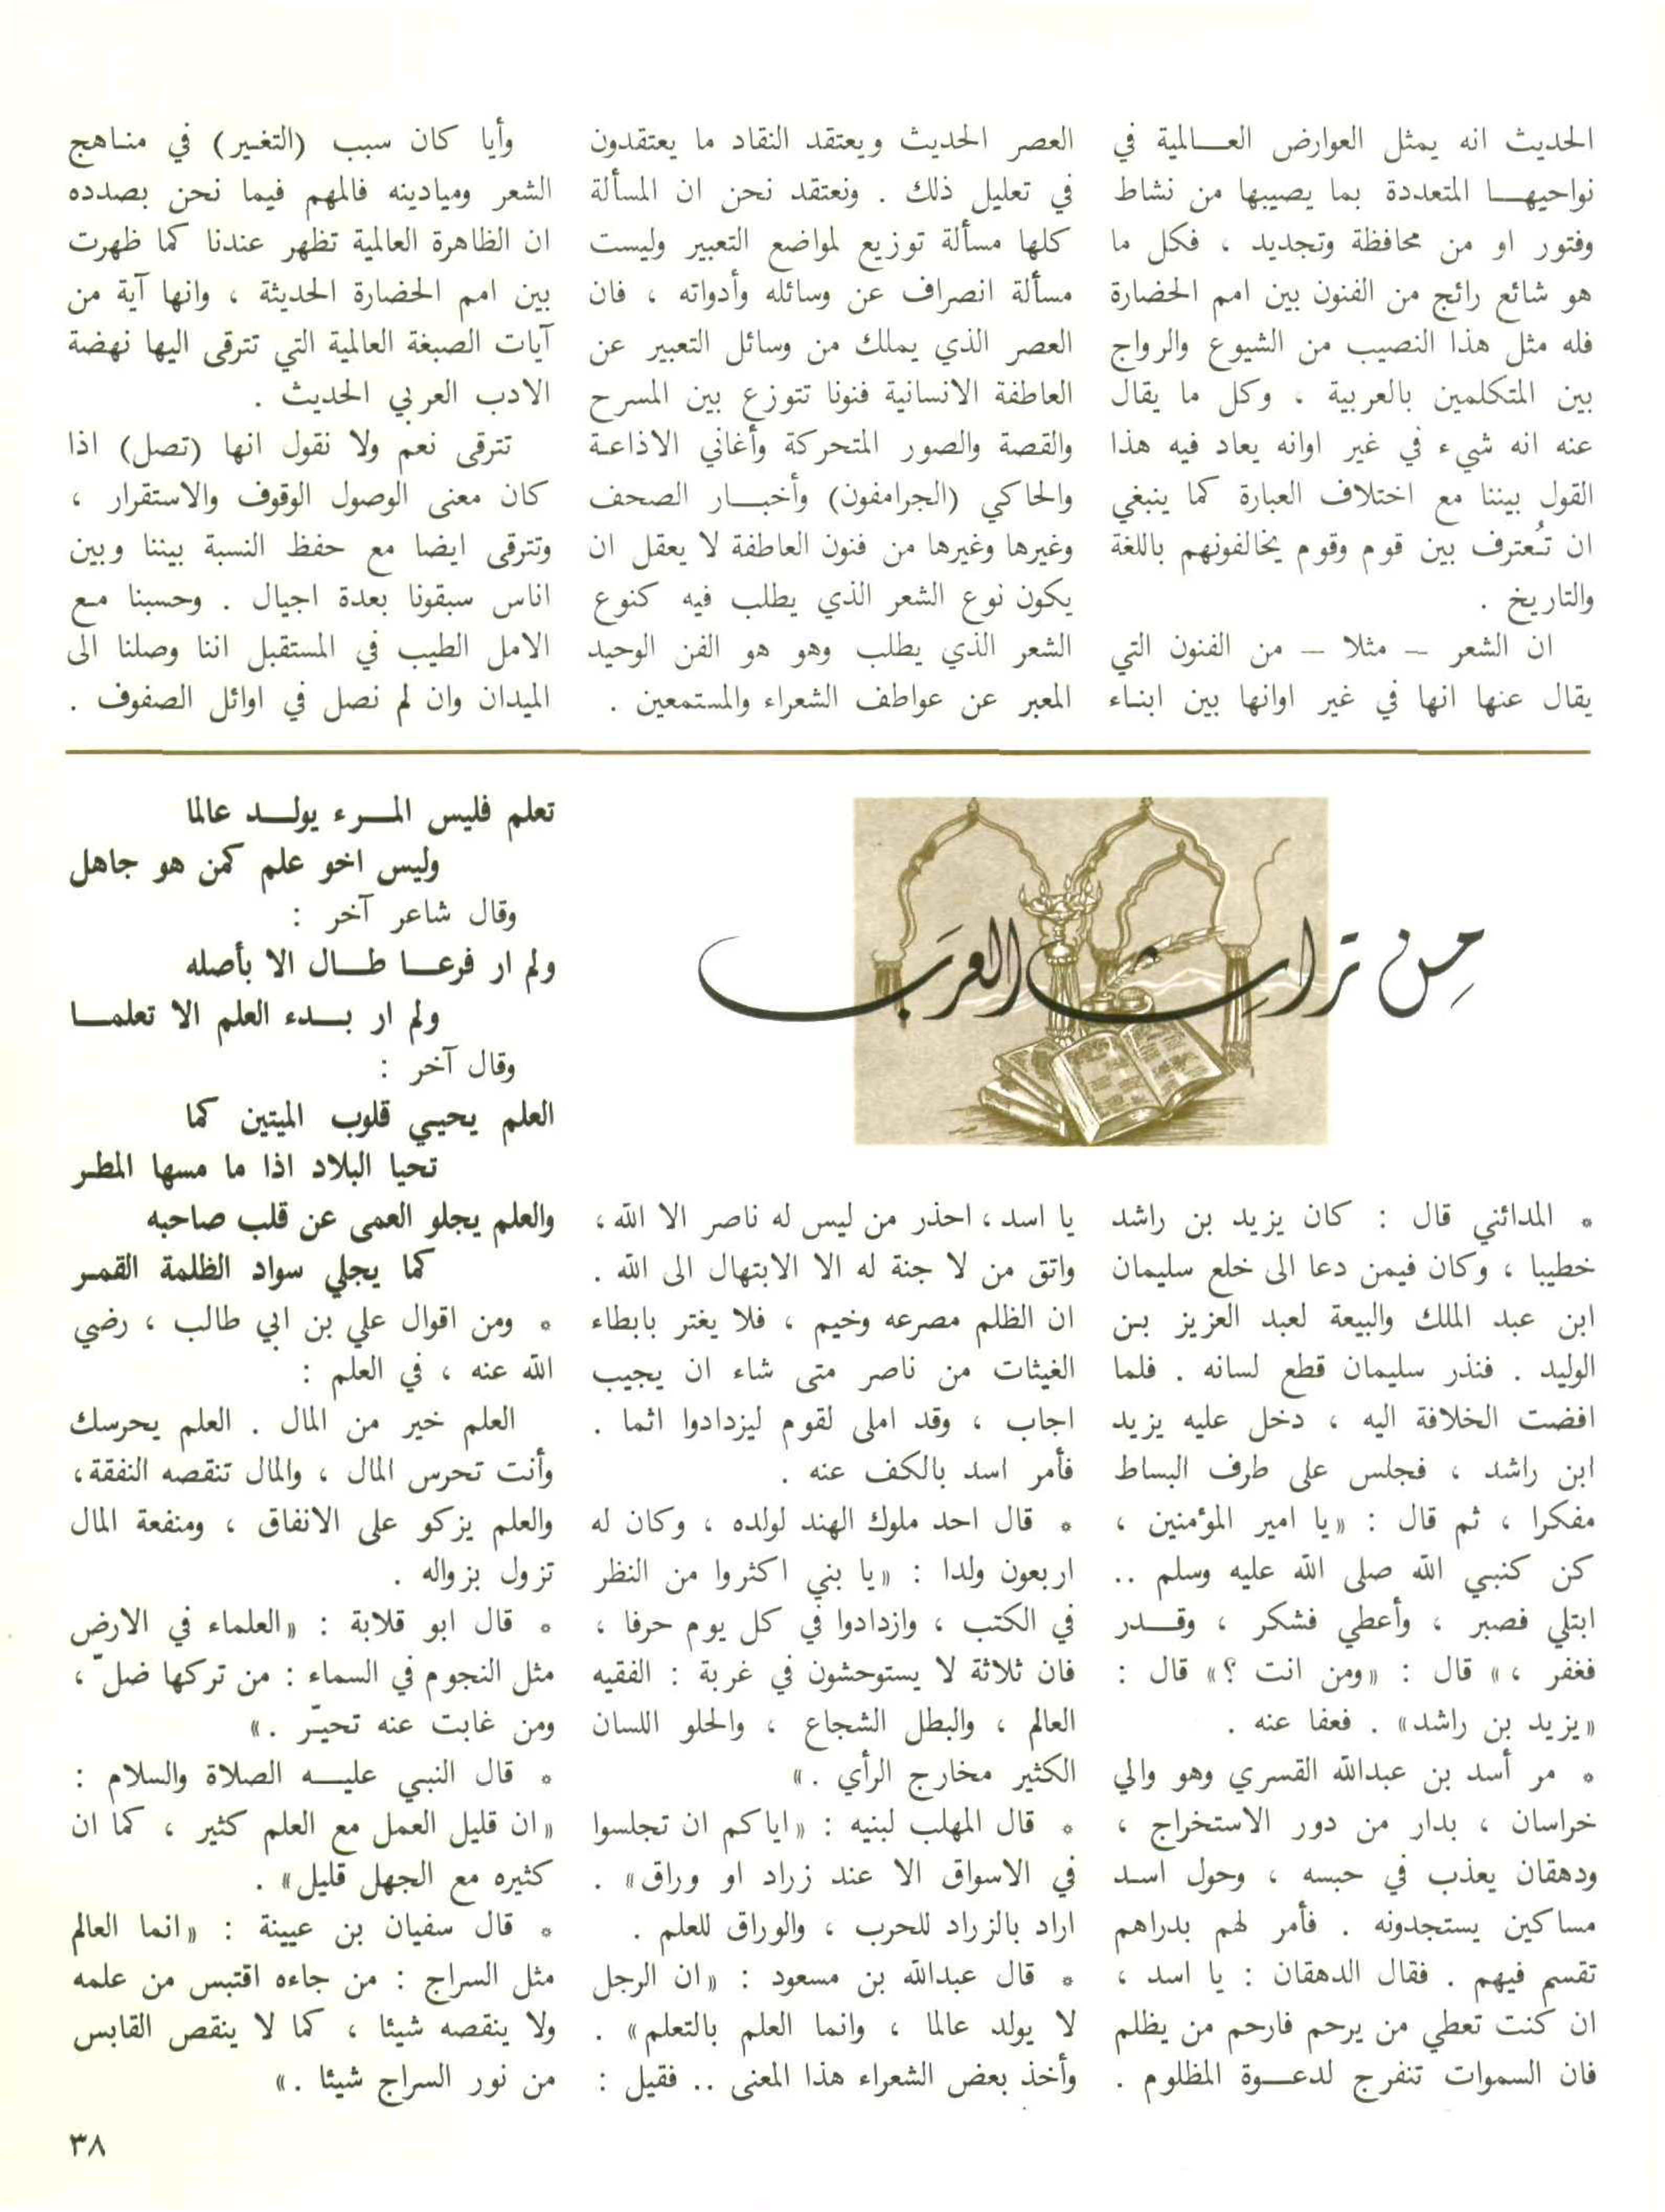 الحديث انه يمثل العوارض العـــالمية في
نواحيهـــا المتعددة بما يصيبها من نشاط
وفتور او من محافظة وتجديد ، فكل ما
هو شائع رائج من الفنون بين امم الحضارة
فله مثل هذا النصيب من الشيوع والرواج
بين المتكلمين بالعربية ، وكل ما يقال
عنه انه شيء في غير اوانه يعاد فيه هذا
القول بيننا مع اختلاف العبارة كما ينبغي
ان تُعترف بين قوم وقوم يخالفونهم باللغة
والتاريخ .
ان الشعر – مثلا – من الفنون التي
يقال عنها انها في غير اوانها بين ابناء
العصر الحديث ويعتقد النقاد ما يعتقدون
في تعليل ذلك . ونعتقد نحن ان المسألة
كلها مسألة توزيع لمواضع التعبير وليست
مسألة انصراف عن وسائله وأدواته ، فان
العصر الذي يملك من وسائل التعبير عن
العاطفة الانسانية فنونا تتوزع بين المسرح
والقصة والصور المتحركة وأغاني الاذاعة
والحاكي (الجرامفون) وأخبـــار الصحف
وغيرها وغيرها من فنون العاطفة لا يعقل ان
يكون نوع الشعر الذي يطلب فيه كنوع
الشعر الذي يطلب وهو هو الفن الوحيد
المعبر عن عواطف الشعراء والمستمعين .
وأيا كان سبب (التغير) في مناهج
الشعر وميادينه فالمهم فيما نحن بصدده
ان الظاهرة العالمية تظهر عندنا كما ظهرت
بين امم الحضارة الحديثة ، وانها آية من
آيات الصبغة العالمية التي تترقى اليها نهضة
الادب العربي الحديث .
تترقى نعم ولا نقول انها (تصل) اذا
كان معنى الوصول الوقوف والاستقرار ،
وتترقى ايضا مع حفظ النسبة بيننا وبين
اناس سبقونا بعدة اجيال . وحسبنا مع
الامل الطيب في المستقبل اننا وصلنا الى
الميدان وان لم نصل في اوائل الصفوف .
من تراث العرب
* المدائني قال : كان يزيد بن راشد
خطيبا ، وكان فيمن دعا الى خلع سليمان
ابن عبد الملك والبيعة لعبد العزيز بن
الوليد . فنذر سليمان قطع لسانه . فلما
افضت الخلافة اليه ، دخل عليه يزيد
ابن راشد ، فجلس على طرف البساط
مفكرا ، ثم قال : «يا امير المؤمنين ،
كن كنبي الله صلى الله عليه وسلم ..
ابتلي فصبر ، وأعطي فشكر ، وقـــدر
فغفر ،» قال : «ومن انت ؟» قال :
«يزيد بن راشد» . فعفا عنه .
* مر أسد بن عبدالله القسري وهو والي
خراسان ، بدار من دور الاستخراج ،
ودهقان يعذب في حبسه ، وحول اسد
مساكين يستجدونه . فأمر لهم بدراهم
تقسم فيهم . فقال الدهقان : يا اسد ،
ان كنت تعطي من يرحم فارحم من يظلم
فان السموات تنفرج لدعـــوة المظلوم .
يا اسد ، احذر من ليس له ناصر الا الله ،
واتق من لا جنة له الا الابتهال الى الله .
ان الظلم مصرعه وخيم ، فلا يغتر بابطاء
الغيثات من ناصر متى شاء ان يجيب
اجاب ، وقد املى لقوم ليزدادوا اثما .
فأمر اسد بالكف عنه .
* قال احد ملوك الهند لولده ، وكان له
اربعون ولدا : «يا بني اكثروا من النظر
في الكتب ، وازدادوا في كل يوم حرفا ،
فان ثلاثة لا يستوحشون في غربة : الفقيه
العالم ، والبطل الشجاع ، والحلو اللسان
الكثير مخارج الرأي .»
* قال المهلب لبنيه : «اياكم ان تجلسوا
في الاسواق الا عند زراد او وراق» .
اراد بالزراد للحرب ، والوراق للعلم .
* قال عبدالله بن مسعود : «ان الرجل
لا يولد عالما ، وانما العلم بالتعلم» .
وأخذ بعض الشعراء هذا المعنى .. فقيل :
تعلم فليس المـــرء يولـــد عالما
وليس اخو علم كمن هو جاهل
وقال شاعر آخر :
ولم ار فرعـــا طـــال الا بأصله
ولم ار بـــدء العلم الا تعلمـــا
وقال آخر :
العلم يحيي قلوب الميتين كما
تحيا البلاد اذا ما مسها المطر
والعلم يجلو العمى عن قلب صاحبه
كما يجلي سواد الظلمة القمر
* ومن اقوال علي بن ابي طالب ، رضي
الله عنه ، في العلم :
العلم خير من المال . العلم يحرسك
وأنت تحرس المال ، والمال تنقصه النفقة ،
والعلم يزكو على الانفاق ، ومنفعة المال
تزول بزواله .
* قال ابو قلابة : «العلماء في الارض
مثل النجوم في السماء : من تركها ضلّ ،
ومن غابت عنه تحيّر .»
* قال النبي عليـــه الصلاة والسلام :
«ان قليل العمل مع العلم كثير ، كما ان
كثيره مع الجهل قليل» .
* قال سفيان بن عيينة : «انما العالم
مثل السراج : من جاءه اقتبس من علمه
ولا ينقصه شيئا ، كما لا ينقص القابس
من نور السراج شيئا .»
٣٨